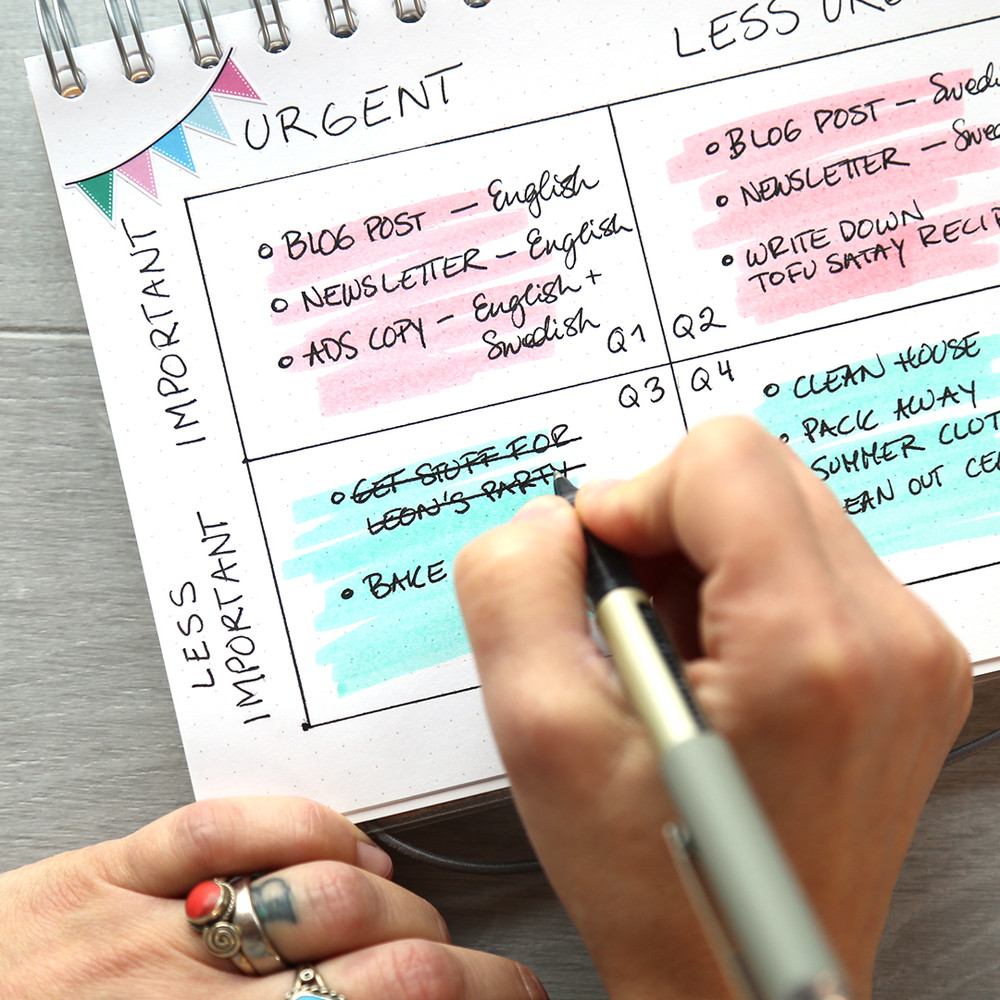 URGENT
LESS
IMPORTANT
BLOG POST — English
NEWSLETTER — English
ADS COPY — English +
Swedish
Q1
BLOG POST —
NEWSLETTER —
WRITE DOWN
TOFU SATAY
Q2
LESS
IMPORTANT
GET STUFF FOR
LEON'S PARTY
BAKE
Q3
Q4
CLEAN HOUSE
PACK AWAY
SUMMER
OUT